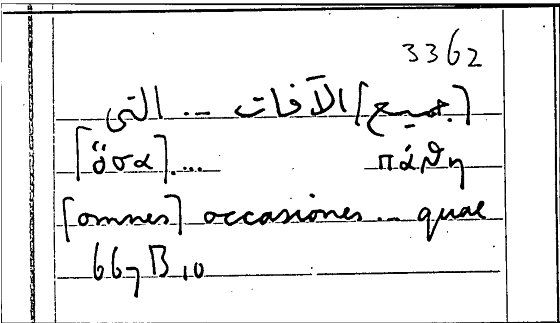 3362
[جميع] الآفات ... التى
[ὅσα] .... πάθη
[omnes] occasiones ... quae
667 B 10